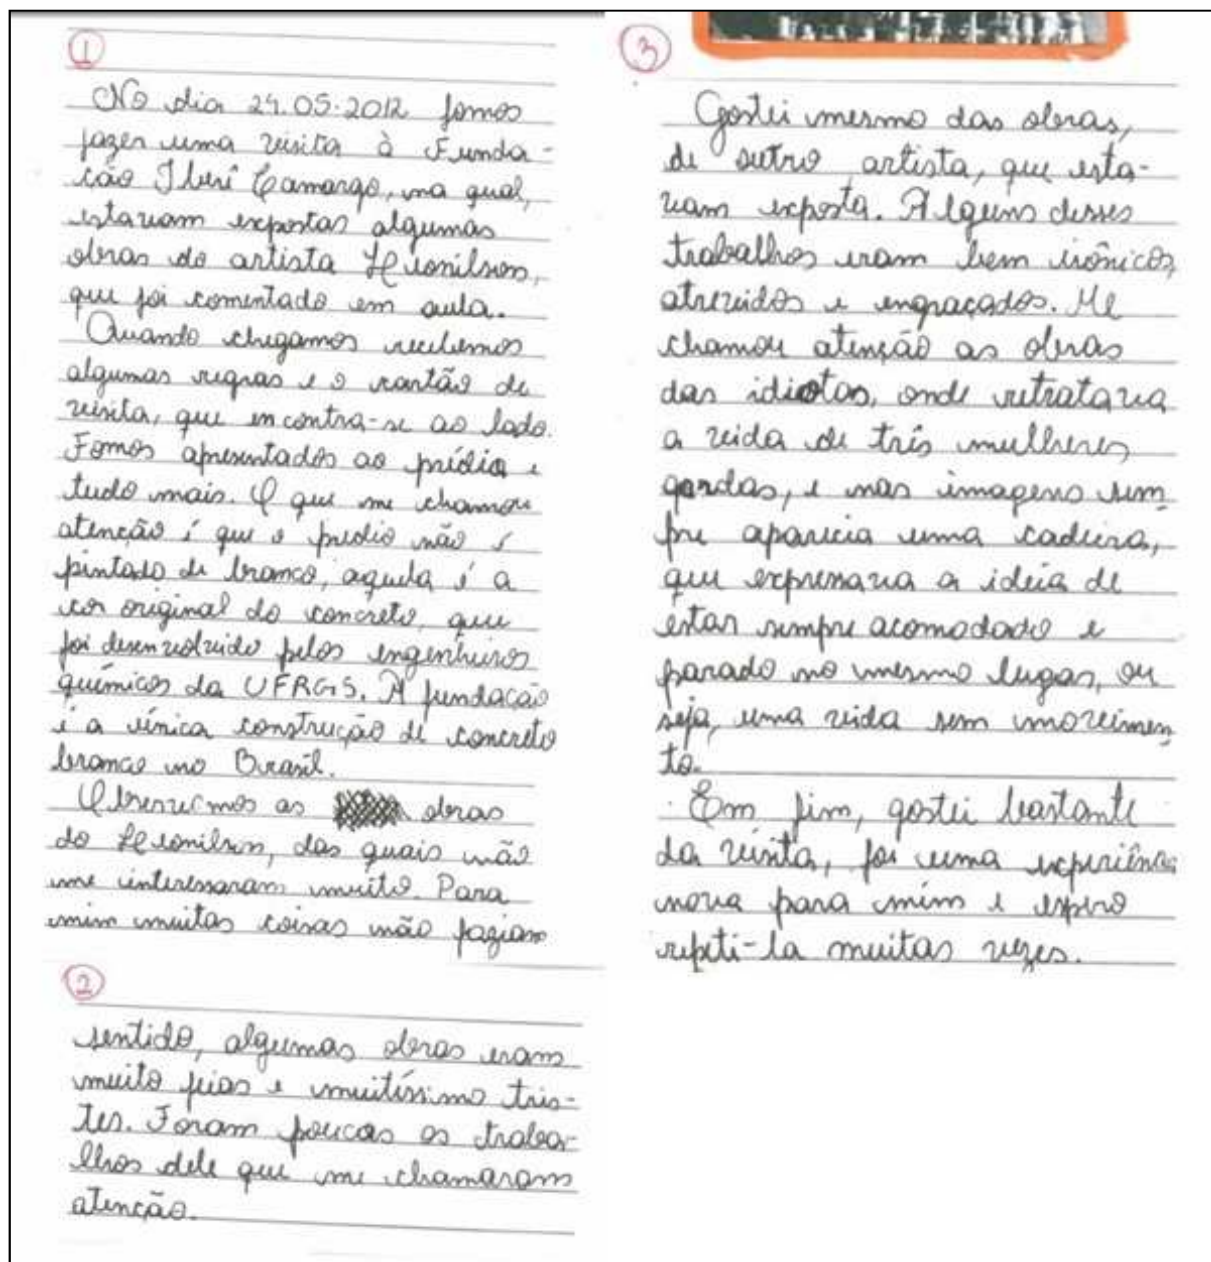 1
No dia 24.05.2012 fomos
fazer uma visita à Funda-
ção Iberê Camargo, na qual,
estavam expostas algumas
obras do artista Leonilson,
que foi comentado em aula.
Quando chegamos recebemos
algumas regras e o cartão de
visita, que encontra-se ao lado.
Fomos apresentados ao prédio e
tudo mais. O que me chamou
atenção é que o predio não é
pintado de branco, aquela é a
cor original do concreto, que
foi desenvolvido pelos engenheiros
químicos da UFRGS. A fundação
é a única construção de concreto
branco no Brasil.
Observemos as obras
do Leonilson, das quais não
me interessaram muito. Para
mim muitas coisas não faziam
2
sentido, algumas obras eram
muito feias e muitíssimo tris-
tes. Foram poucas os traba-
lhos dele que me chamaram
atenção.
3
Gostei mesmo das obras,
de outro artista, que esta-
vam exposta. Alguns desses
trabalhos eram bem irônicos,
atrevidos e engraçados. Me
chamou atenção as obras
das idiotas, onde retratava
a vida de três mulheres
gordas, e nas imagens sem
pre aparecia uma cadeira,
que expressava a ideia de
estar sempre acomodado e
parado no mesmo lugar, ou
seja, uma vida sem movimen
to.
Em fim, gostei bastante
da visita, foi uma experiência
nova para mim e espero
repeti-la muitas vezes.